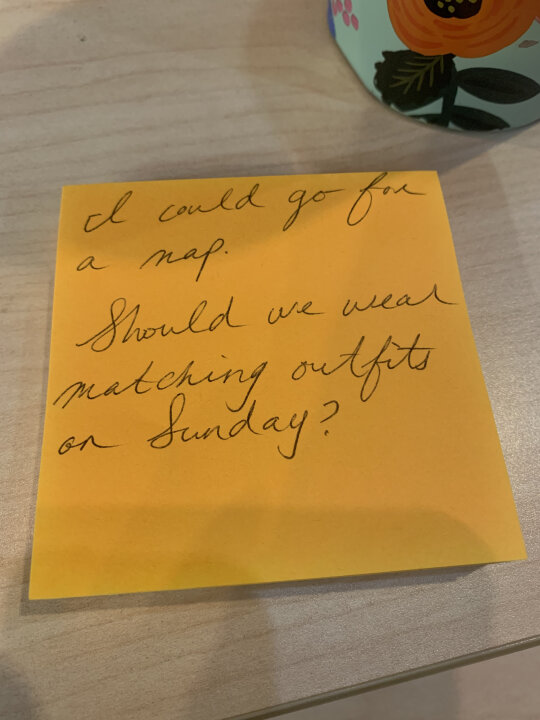 I could go for
a nap.
Should we wear
matching outfits
on Sunday?